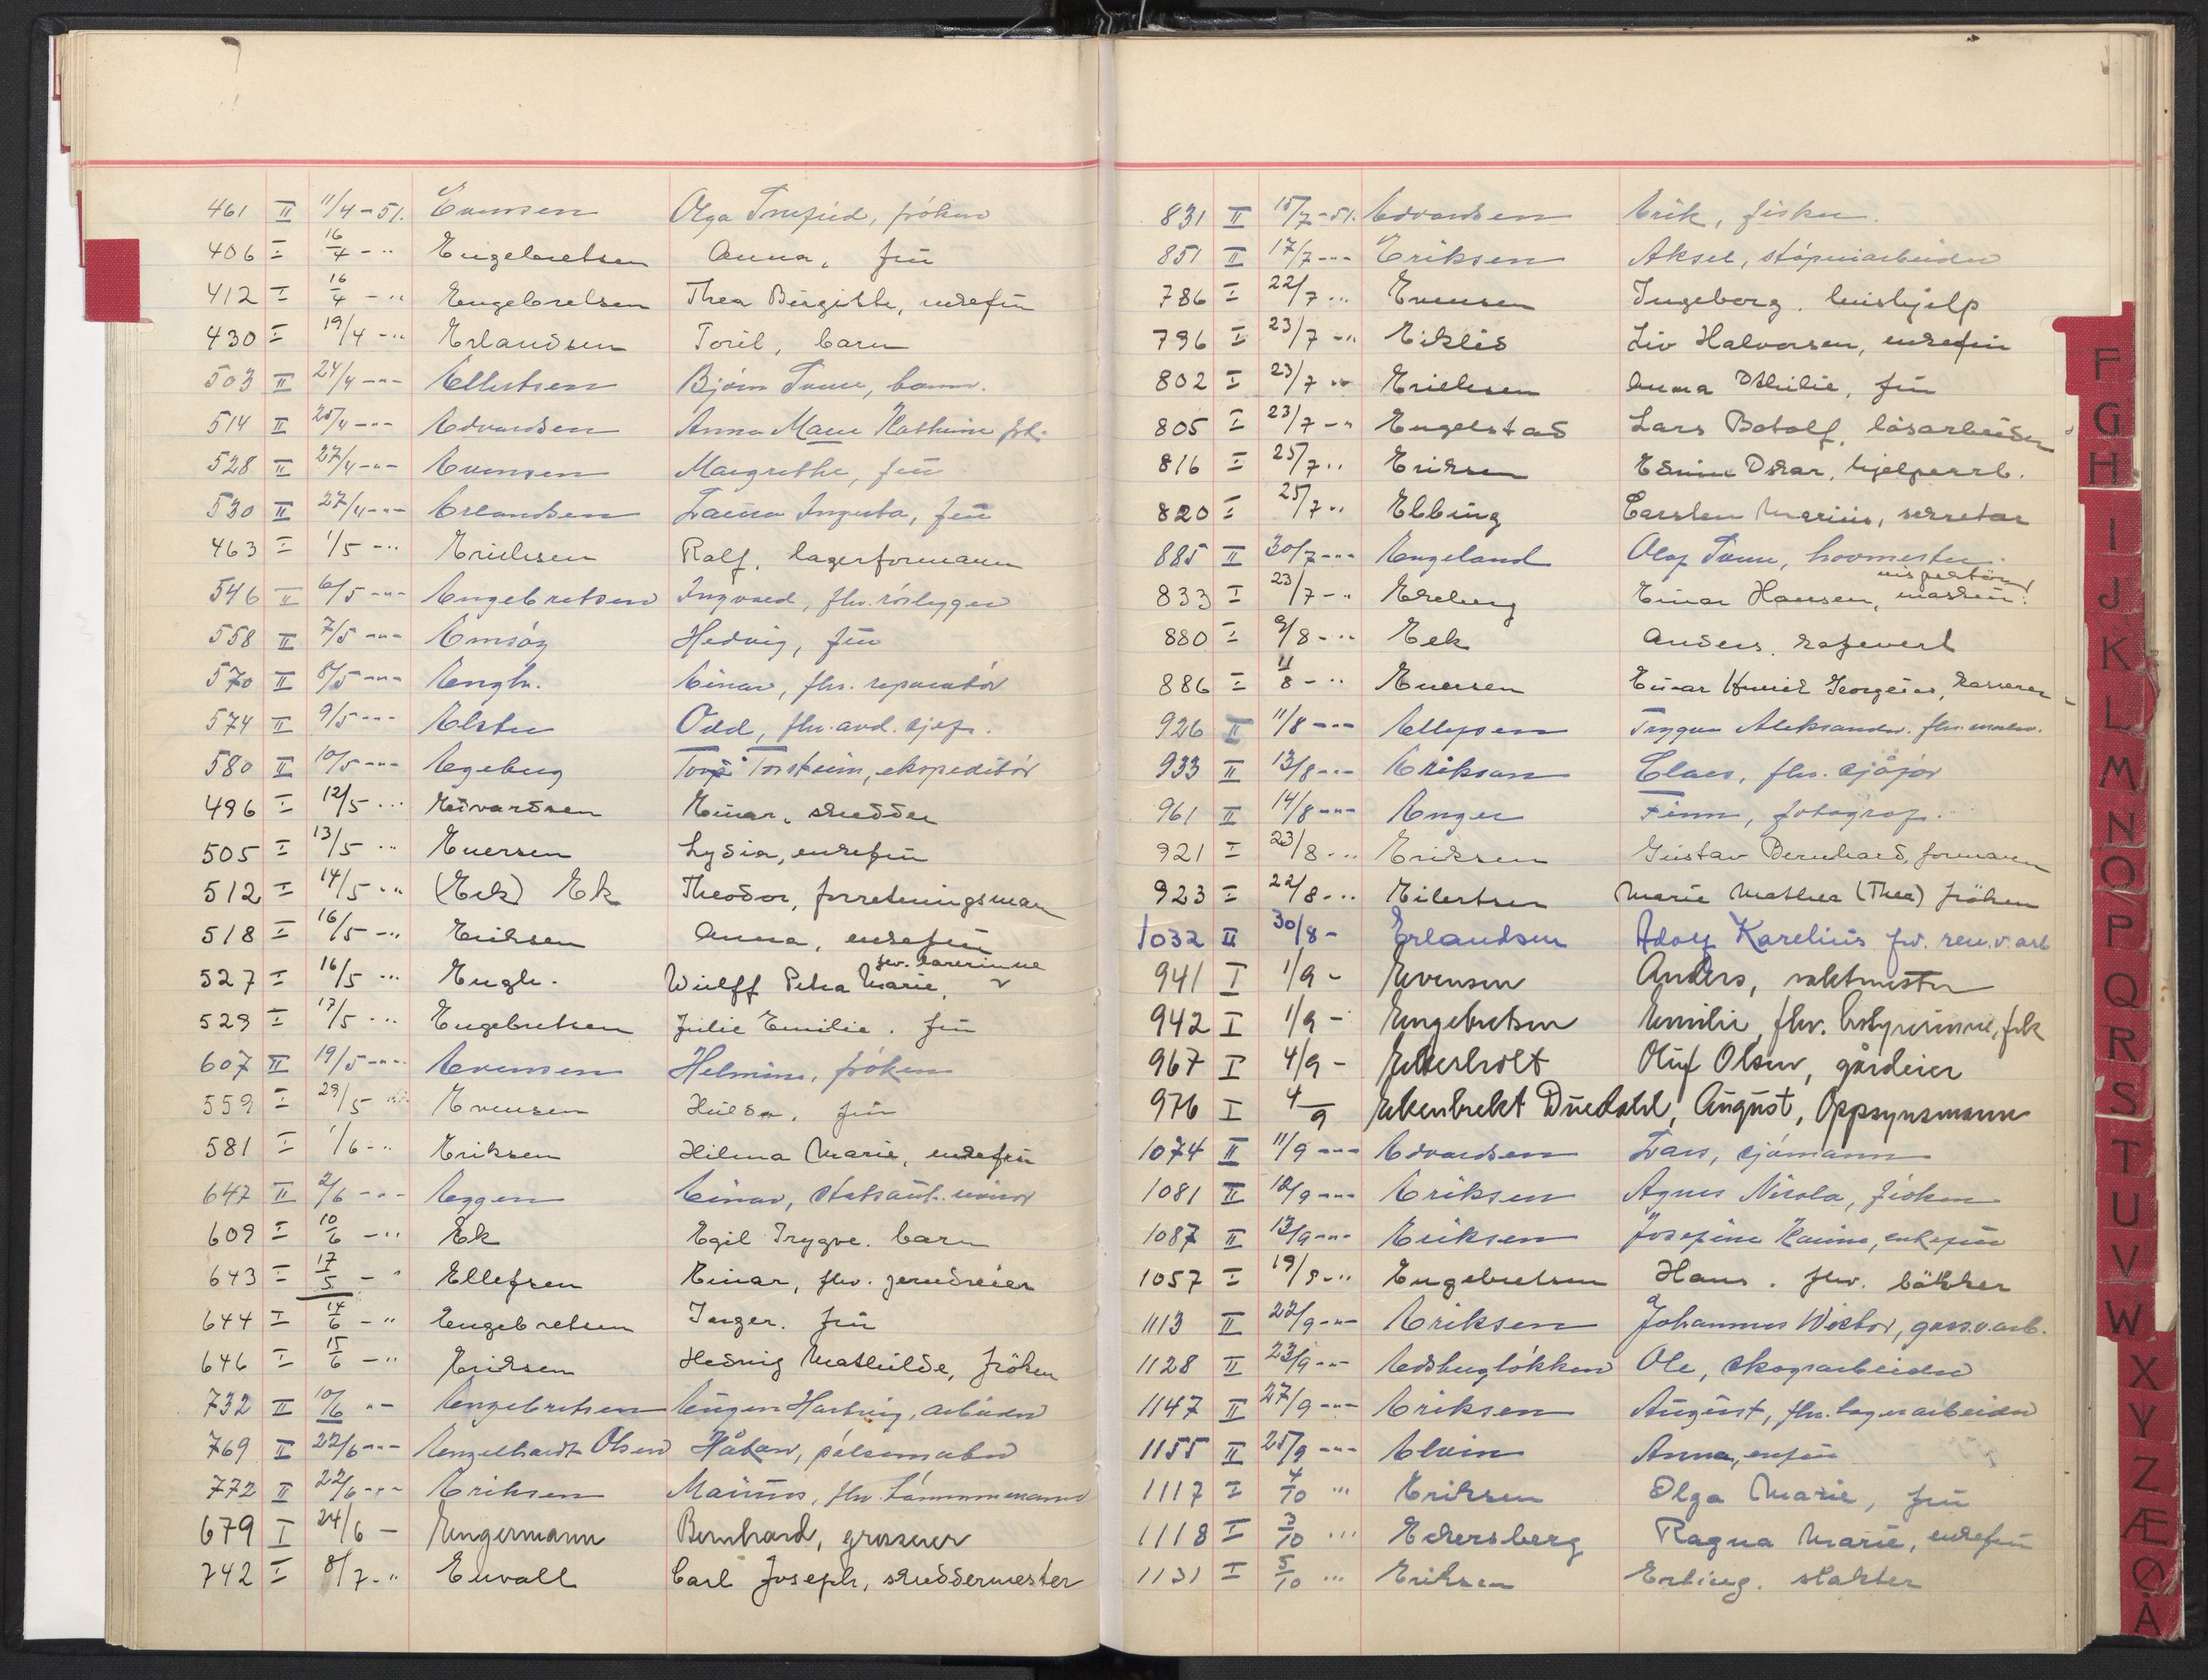 461 II 11/4-51. Evensen Olga, fröken
406 I 16/4 -" Engebretsen Anna, frü
412 I 16/4 -" Engebretsen Thea Birgitte, enkefrü
430 I 19/4 -" Erlandsen Toril, barn
503 II 24/4 -"- Ellertsen Björn Tore, barn.
514 II 25/4 -"- Edvardsen Anna Marie Kathrine frk.
528 II 27/4 -"- Evensen Margrethe, frü
530 II 27/4 -"- Erlandsen Laura Ingerta, frü
463 I 1/5 -" Erichsen Rolf, lagerformann
546 II 6/5 -"- Engebretsen Ingvard, fhv. rörlegger
558 II 7/5 -"- Hedvig, frü
570 II 8/5 -"- Engh. Einar, fhv. reparatör
574 II 9/5 -"- Elster Odd, fhv. avd. sjef.
580 II 10/5 -"- Egeberg Tore Torstein, ekspeditör
496 I 12/5 -" Edvardsen Einar, skredder
505 I 13/5 -" Evensen Lydia, enkefrü
512 I 14/5 -" (Eek) Ek Theodor, forretningsman
518 I 16/5 -" Eriksen Anna, enkefrü
527 I 16/5 -" Engh. Wülff Petra Marie, fhv. lærerinne
529 I 17/5 -" Engebretsen Julie Emilie. frü
607 II 19/5 -"- Evensen Helmine, fröken
559 I 29/5 Evensen Hulda, frü
581 I 1/6 -" Eriksen Hilma Marie, enkefrü
647 II 2/6 -"- Eggen Einar, statsaut. revisor
609 I 10/6 -" Ek Egil Trygve. barn
643 I 17/5 -" Ellefsen Einar, fhv. gårdeier
644 I 14/6 -" Engebretsen Inger. frü
646 I 15/6 -" Eriksen Hedvig Mathilde, fröken
732 II 10/6 "- Engebretsen Eugen Hartvig, arbeider
769 II 22/6 -"- Engelhardt Olsen Håkon, pölsemaker
772 II 22/6 -"- Eriksen Marius, fhv. tömmermann
679 I 24/6 - Engermann Bernhard, grosserer
742 I 8/7 -" Envall Carl Joseph, skreddermester
831 II 15/7-51. Edvardsen Erik, fisker.
851 II 17/7 -"- Eriksen Aksel, stöperiarbeider
786 I 22/7 -" Evensen Ingeborg. hüshjelp
796 I 23/7 -" Eiklid Liv Halvorsen, enkefrü
802 I 23/7 -" Erichsen Anna Othilie, frü
805 I 23/7 -" Engelstad Lars Botolf, låsarbeider
816 I 25/7 " Eriksen Edvin Oskar, hjelperarb.
820 I 25/7 " Ebbing Carsten Marius, sekretær
885 II 30/7 -"- Engeland Olaf Tore, hovmester.
833 I 23/7 -" Ekeberg Einar Hansen, maskin. inspektör
880 I 9/8 -" Eek Anders. kafevert
886 I 11/8 -" Evensen Einar Henrik Georgius, kasserer
926 II 11/8 -"- Ellefsen Trygve Aleksander. fhv. maler.
933 II 13/8 -"- Erikson Claes, fhv. sjåför
961 II 14/8 -"- Enger Finn, fotograf.
921 I 23/8 -" Eriksen Güstav Bernhard, formann
923 I 22/8 -" Eilertsen Marie Mathea (Thea) fröken
1032 II 30/8 - Erlandsen Adolf Karelius fv. renv. arb
941 I 1/9 - Evensen Anders, vaktmester
942 I 1/9 - Engebretsen Emilie, fhv. bestyrerinne, frk
967 I 4/9 - Ekerholt Oluf Olsen, gårdeier
976 I 4/9 Ekenbrekt Duedahl, August, Oppsynsmann
1074 II 11/9 -"- Edvardsen Lars, sjömann
1081 II 12/9 -"- Eriksen Agnes Nicola, fröken
1087 II 13/9 -"- Eriksen Josefine Karine, enkefrü
1057 I 19/9 -" Engebretsen Hans. fhv. bakker
1113 II 22/9 -"- Eriksen Johannes Victor, gassv.arb.
1128 II 23/9 -"- Edsberglökken Ole, skogsarbeider
1147 II 27/9 -"- Eriksen August, fhv. lagerarbeider
1155 II 25/9 -"- Elvin Anna, enkefrü
1117 I 4/10 -" Eriksen Olga Marie, frü
1118 I 3/10 -" Eckersberg Ragna Marie, enkefrü
1131 I 5/10 -" Eriksen Erling. slakter
F
G
H
I
J
K
L
M
N
O
P
Q
R
S
T
U
V
W
X
Y
Z
Æ
Ø
Å